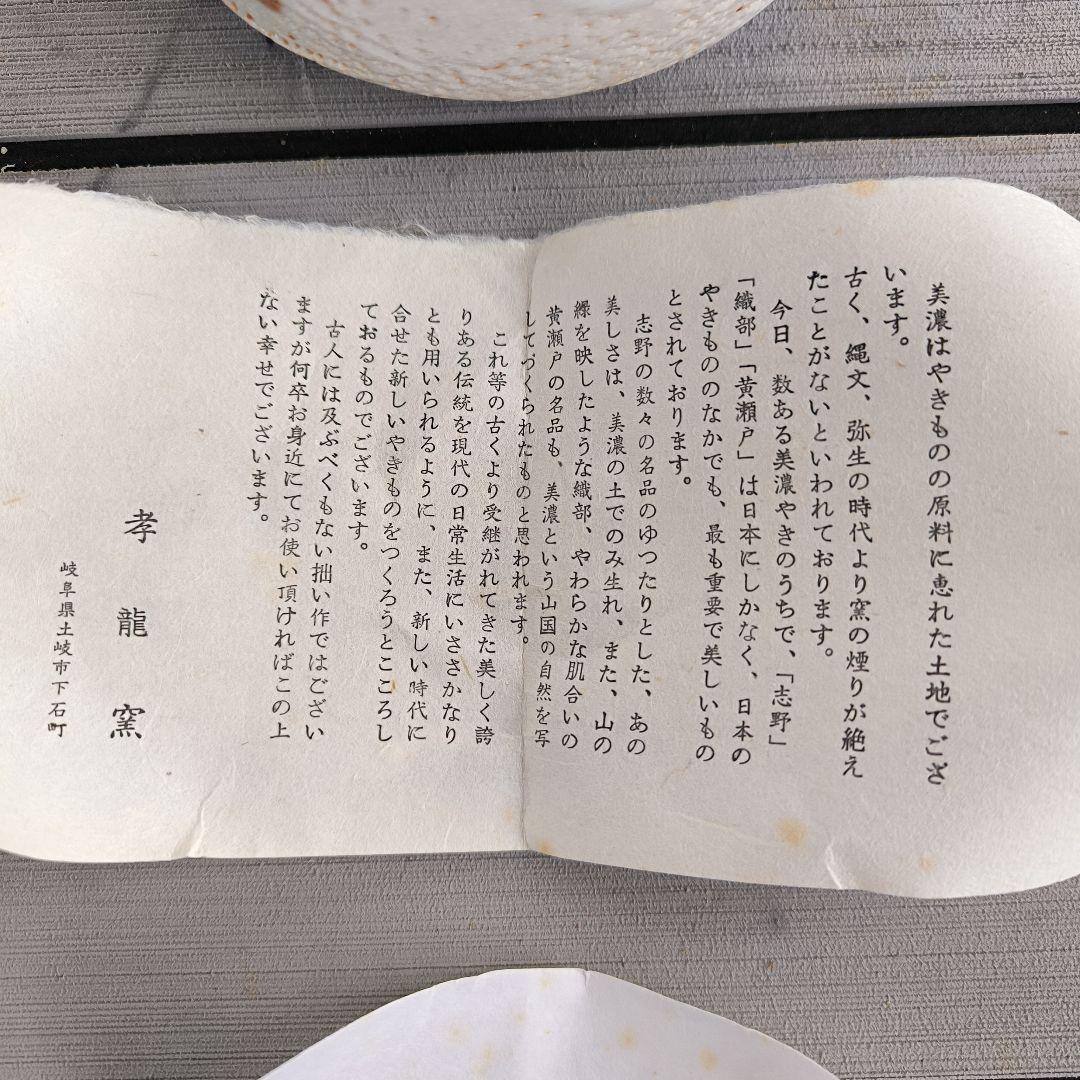 美濃はやきものの原料に恵れた土地でござ
います。
古く、縄文、弥生の時代より窯の煙りが絶え
たことがないといわれております。
今日、数ある美濃やきのうちで、「志野」
「織部」「黄瀬戸」は日本にしかなく、日本の
やきもののなかでも、最も重要で美しいもの
とされております。
志野の数々の名品のゆつたりとした、あの
美しさは、美濃の土でのみ生れ、また、山の
緑を映したような織部、やわらかな肌合いの
黄瀬戸の名品も、美濃という山国の自然を写
してづくられたものと思われます。
これ等の古くより受継がれてきた美しく誇
りある伝統を現代の日常生活にいささかなり
とも用いられるように、また、新しい時代に
合せた新しいやきものをつくろうとこころし
ておるものでございます。
古人には及ぶべくもない拙い作ではござい
ますが何卒お身近にてお使い頂ければこの上
ない幸せでございます。
孝龍窯
岐阜県土岐市下石町